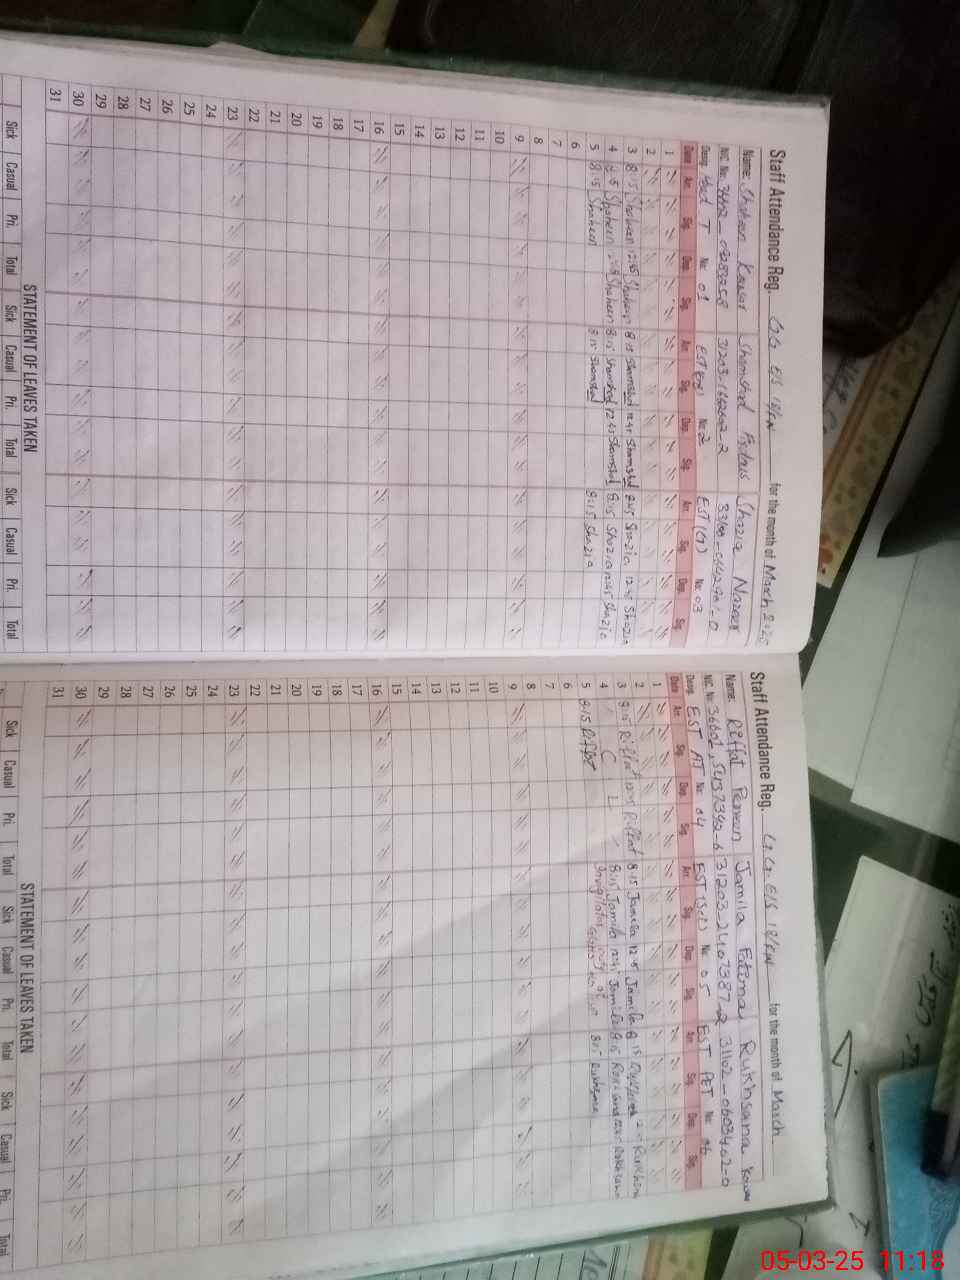 Staff Attendance Reg. G.G. E/S 18/FW for the month of March, 2025
Name: Shaheen Kausar Shamshad Firdous Shazia Nazeer
NIC. No:
Desig. Head T No: 01 EST No: 2 EST (G) No: 03
Date Arr. Sig. Dep. Sig. Arr. Sig. Dep. Sig. Arr. Sig. Dep. Sig.
1
2
3 8:15 Shaheen 12:45 Shaheen 8:15 Shamshad 12:45 Shamshad 8:15 Shazia 12:45 Shazia
4 8:15 Shaheen 12:45 Shaheen 8:15 Shamshad 12:45 Shamshad 8:15 Shazia 12:45 Shazia
5 8:15 Shaheen 8:15 Shamshad 8:15 Shazia
6
7
8
9
10
11
12
13
14
15
16
17
18
19
20
21
22
23
24
25
26
27
28
29
30
31
STATEMENT OF LEAVES TAKEN
Sick Casual Pri. Total Sick Casual Pri. Total Sick Casual Pri. Total
Staff Attendance Reg. G.G. E/S 18/FW for the month of March
Name: Riffat Perveen Jamila Fatima Rukhsana Kawser
NIC. No: 31203-2407387-2 31102-0603462-0
Desig. EST AT No: 04 EST (S.) No: 05 EST PET No: 06
Date Arr. Sig. Dep. Sig. Arr. Sig. Dep. Sig. Arr. Sig. Dep. Sig.
1
2
3 8:15 Riffat 12:45 Riffat 8:15 Jamila 12:45 Jamila 8:15 Rukhsana Rukhsana
4 C L 8:15 Jamila 12:45 Jamila 8:15 Rukhsana 12:45 Rukhsana
5 8:15 Riffat 8:15 Rukhsana
6
7
8
9
10
11
12
13
14
15
16
17
18
19
20
21
22
23
24
25
26
27
28
29
30
31
STATEMENT OF LEAVES TAKEN
Sick Casual Pri. Total Sick Casual Pri. Total Sick Casual Pri. Total
05-03-25 11:18